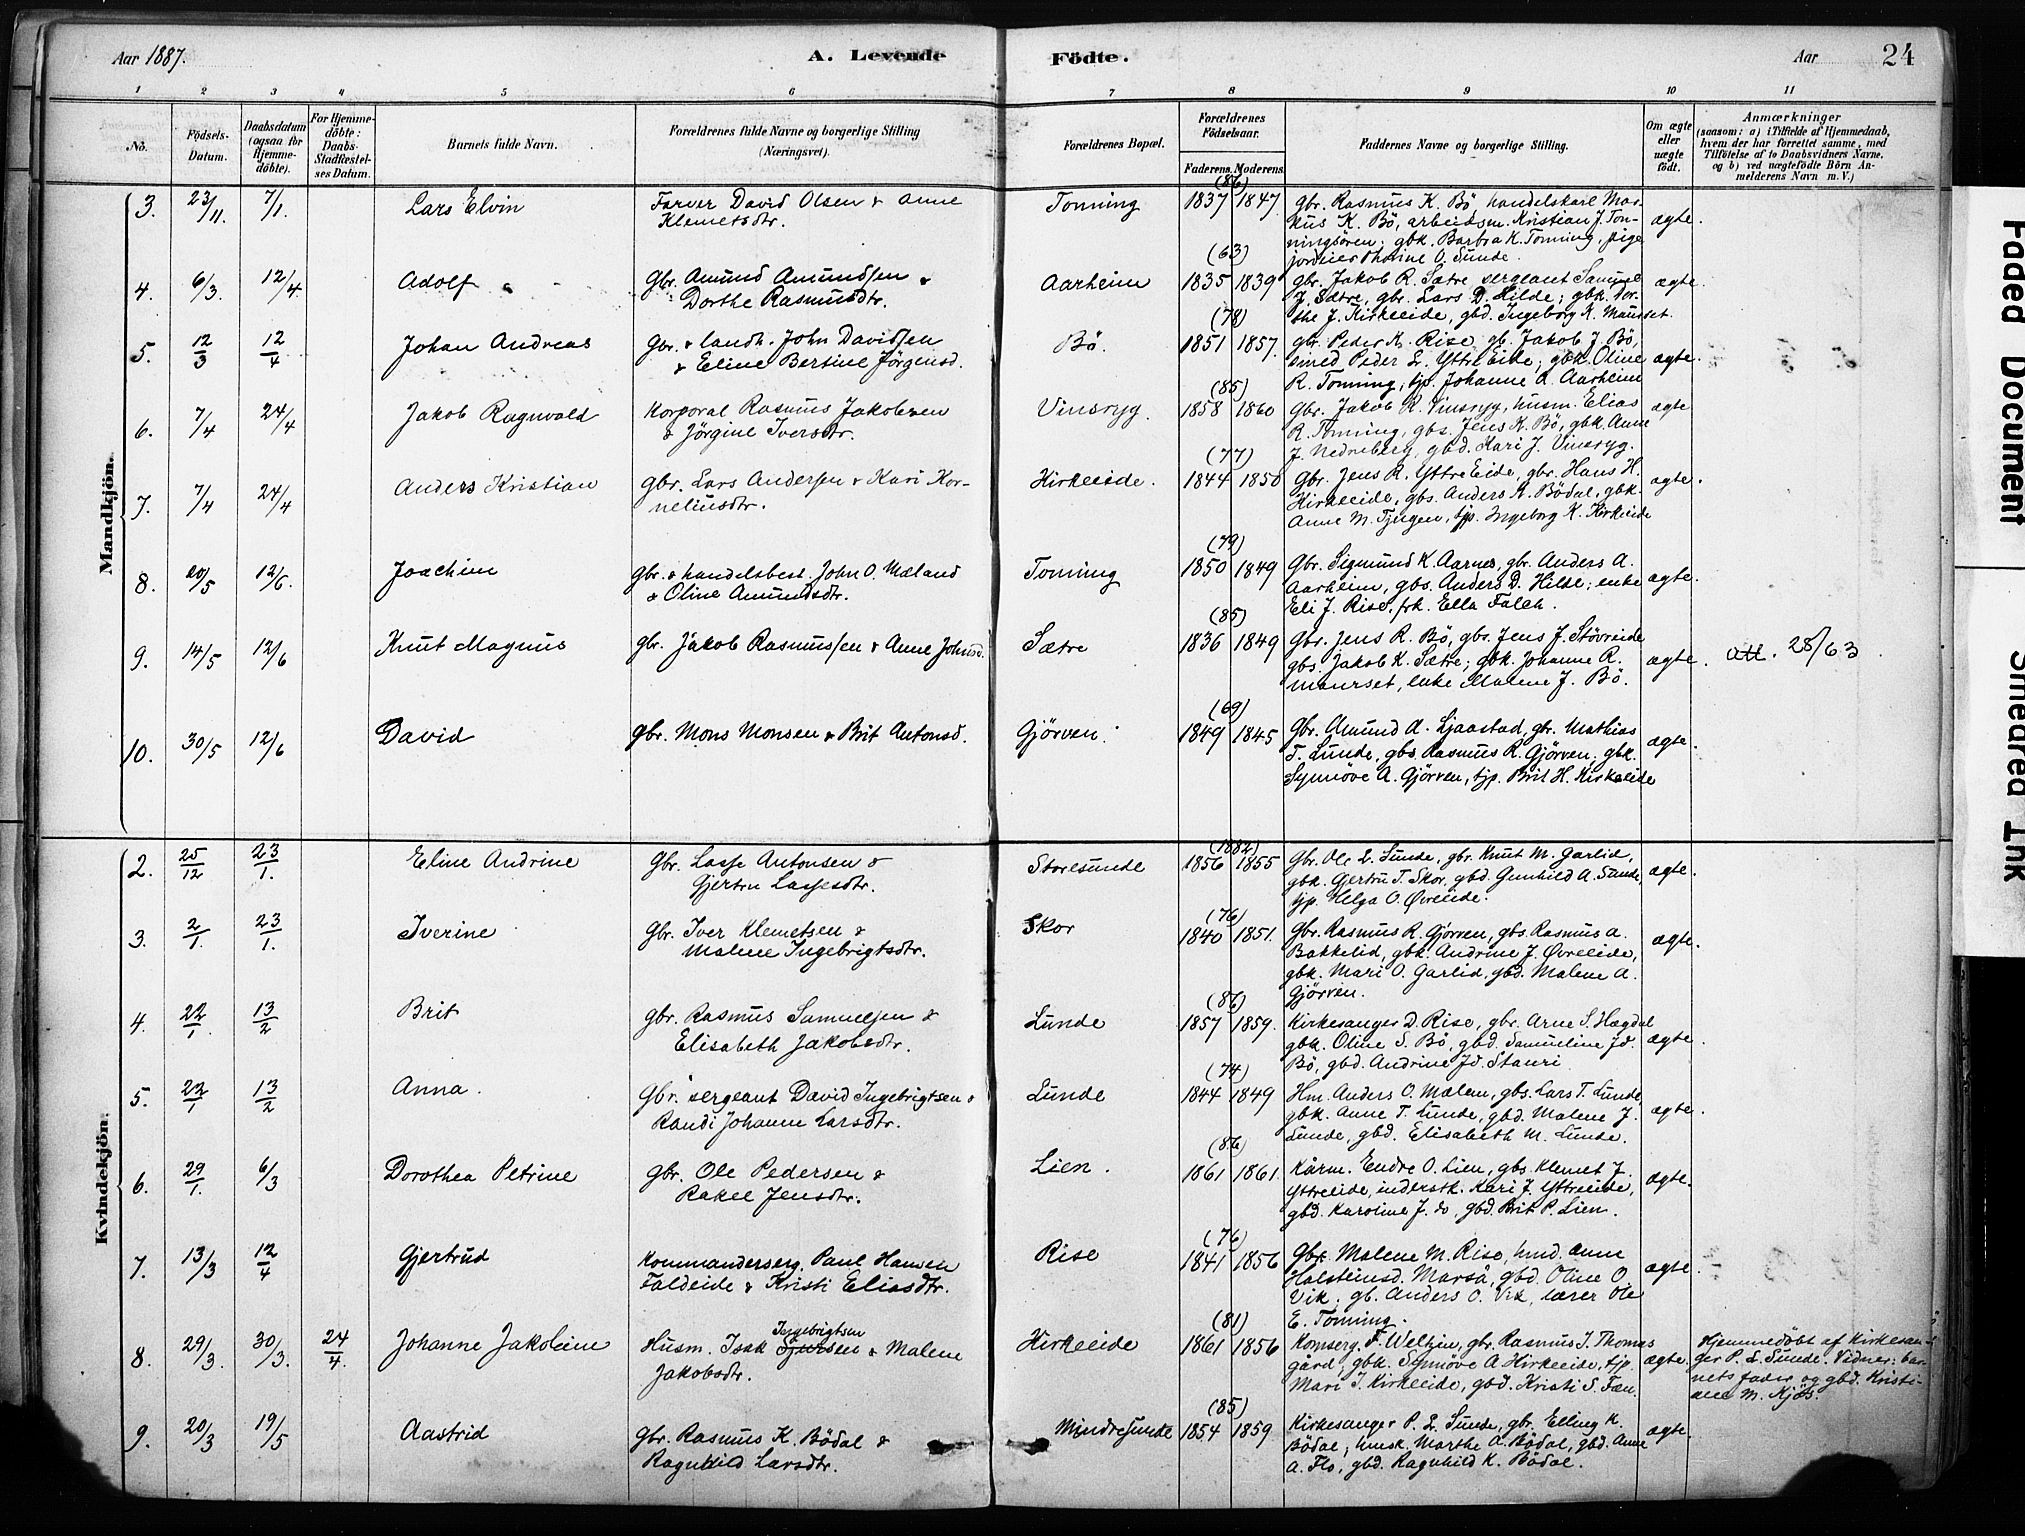 Aar 1887.
A. Levende
Födte.
Aar
24
1 2 3 4 5 6 7 8 9 10 11
No.
Födsels-Datum.
Daabsdatum (ogsaa for Hjemme-döbte).
For Hjemme-döbte: Daabs-Stadfæstel-ses Datum.
Barnets fulde Navn.
Forældrenes fulde Navne og borgerlige Stilling (Næringsvei).
Forældrenes Bopæl.
Forældrenes Födselsaar.
Faderens. Moderens.
Faddernes Navne og borgerlige Stilling.
Om ægte eller uægte födt.
Anmærkninger
(saasom: a) i Tilfælde af Hjemmedaab, hvem der har forrettet samme, med Tilföielse af to Daabsvidners Navne, og b) ved uægtefödte Börn An-melderens Navn m. V.)
Mandkjön.
3. 23/11. 7/1. Lars Elvin
Farver David Olsen & Anne
Klemetsdtr.
Tonning (86) 1837 1847
Gbr. Rasmus K. Bö handelskarl Mar-
kus K. Bö, arbeidsm. Kristian J. Ton-
ningsören; gbk. Barbra K. Tonning, pige
Thorine O. Sunde.
ægte.
4. 6/3. 12/4. Adolf
Gbr. Amund Amundsen &
Dorthe Rasmusdtr.
Aarheim (63) 1835 1839
gbr. Jakob R. Sætre sergeant Samuel
J. Sætre, gbr. Lars D. Hilde; gbk. Dor-
the J. Kirkeeide, gbd. Ingeborg K. Maurset.
ægte.
5. 12/3 12/4 Johan Andreas
Gbr. & landh. John Davidsen
& Eline Bertine Jörgensd.
Bö. (78) 1851 1857.
gbr. Peder K. Rise, gb. Jakob J Bö,
smed Peder L. Yttre Eide; gbk. Oline
R. Tonning, tjp. Johanne A. Aarheim
ægte.
6. 7/4 24/4 Jakob Ragnvald
Korporal Rasmus Jakobsen
& Jörgine Iversdtr.
Vinsryg. (85) 1858 1860
Gbr. Jakob R. Vinsryg, husm. Elias
R. Tonning, gbs. Jens K. Bö, gbk. Anne
J. Nedreberg, gbd. Kari J. Vinsryg.
ægte
7. 7/4 24/4 Anders Kristian
Gbr. Lars Andersen & Kari Kor-
neliusdtr.
Kirkeeide. (77) 1844 1850
Gbr. Jens R. Yttre Eide, gbr. Hans H.
Kirkeeide, gbs. Anders R. Bödal, gbk.
Anne M. Tjugen, tjp. Ingeborg K. Kirkeeide
ægte.
8. 20/5 12/6. Joachim
Gbr. & handelsbest. John O. Mæland
& Oline Amundsdtr.
Tonning (79) 1850 1849
Gbr. Sigmund K. Aarnes, gbr. Anders A.
Aarheim, gbs. Anders D. Hilde; enke
Eli J. Rise, frk. Ella Falch.
ægte.
9. 14/5 12/6 Knut Magnus
gbr. Jakob Rasmussen & Anne Johnsd.
Sætre (85) 1836 1849
Gbr. Jens R. Bö, gbs. Jens J. Stövreide
gbs. Jakob K. Sætre; gbk. Johanne R.
Maurset, enke Malene J. Bö.
ægte. att. 28/63.
10. 30/5 12/6 David
gbr. Mons Monsen & Brit Antonsd.
Gjörven. (69) 1849 1845
Gbr. Amund A. Ljaastad, gbr. Mathias
T. Sunde, gbs. Rasmus R. Gjörven, gbk.
Synnöve A. Gjörven, tjp. Brit H. Kirkeeide
ægte.
Kvindekjön.
2. 25/12 23/1. Eline Andrine
Gbr. Lasse Antonsen &
Gjertru Lassesdtr.
Storesunde (1882) 1856 1855
Gbr. Ole L. Sunde, gbr. Knut M. Garlid,
gbk. Gjertru T. Skor, gbd. Gunhild A. Sunde,
tjp. Helga O. Övreeide.
ægte.
3. 2/1. 23/1. Iverine
Gbr. Iver Klemetsen &
Malene Ingebrigtsdtr.
Skor (76) 1840 1851.
Gbr. Rasmus R. Gjörven, gbs. Rasmus A.
Bakkelid, gbk. Andrine J. Övreeide,
gbk. Mari O. Garlid, gbd. Malene A.
Gjörven.
ægte.
4. 22/1. 13/2 Brit
gbr. Rasmus Samuelsen &
Elisabeth Jakobsdtr.
Lunde (86) 1857 1859.
Kirkesanger D. Rise, gbr. Arne S. Hægdal
gbk. Oline S. Bö, gbd. Samueline Jd.
Bö, gbd. Andrine Jd. Stauri
ægte.
5. 22/1 13/2 Anna.
Gbr. sergeant David Ingebrigtsen &
Randi Johanne Larsdtr.
Lunde (74) 1844 1849
Hm. Anders O. Mælen, gbs. Lars T. Lunde
gbk. Anne T. Lunde, gbd. Malene J.
Lunde, gbd. Elisabeth M. Lunde.
ægte.
6. 29/1. 6/3 Dorothea Petrine
Gbr. Ole Pedersen &
Rakel Jensdtr.
Lien. (86) 1861 1861.
Kårm. Endre O. Lien, gbs. Klemet J.
Yttreeide, inderstk. Kari J. Yttreeide,
gbd. Karoline J. do, gbd. Brit P. Lien.
ægte.
7. 13/3 12/4 Gjertrud
Kommanderserg. Paul Hansen
Faldeide & Kristi Eliasdtr.
Rise (76) 1841 1856
Gbk. Malene M. Rise, hmd. Anne
Holsteinsd. Marså, gbd. Oline O.
Vik, gb. Anders O. Vik, lærer Ole
E. Tonning.
ægte.
8. 29/3. 30/3. 24/4. Johanne Jakobine
Ingebrigtsen
Husm. Isak & Malene
Jakobsdtr.
Kirkeeide (81) 1861 1856
Komserg. F. Welhin, gbr. Rasmus J. Thomas
gård, gbk. Synnöve A Kirkeeide, tjp.
Mari J. Kirkeeide, gbd. Kristi S. Fæn.
ægte.
Hjemmedöbt af kirkesan-
ger P. L. Sunde. Vidner: bar-
nets fader og gbd. Kristi-
ane M. Kjös.
9. 20/3 19/5 Aastrid
Gbr. Rasmus K. Bödal &
Ragnhild Larsdtr.
Mindresunde (85) 1854 1859
Kirkesanger P. L. Sunde, gbr. Elling K.
Bödal; husk. Marthe A. Bödal, gbd. Anne
A. Flo, gbd. Ragnhild K. Bödal.
ægte.
Faded Document
Smeared Ink